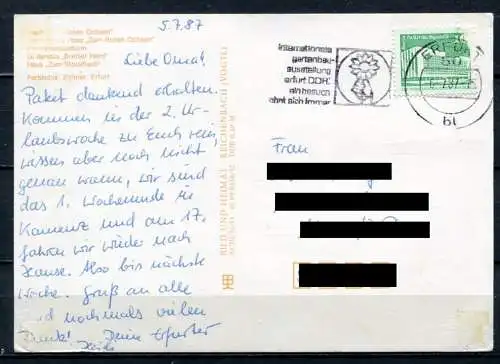 5.7.87
Haus "Zum Roten Ochsen"
Haus "Zum Stockfisch"
Farbfotos: Zöllner, Erfurt
Liebe Oma!
Paket dankend erhalten.
Kommen in der 2. Ur-
laubswoche zu Euch rein,
wissen aber noch nicht
genau wann, wir sind
das 1. Wochenende in
Kamenz und am 17.
fahren wir wieder nach
Hause. Also bis nächste
Woche. Gruß an alle
und nochmals vielen
Dank! Deine Erfurter
BILD UND HEIMAT REICHENBACH (VOGTL)
Internationale
gartenbau-
ausstellung
erfurt DDR:
ein besuch
lohnt sich immer
ERFURT
50
bl
Frau